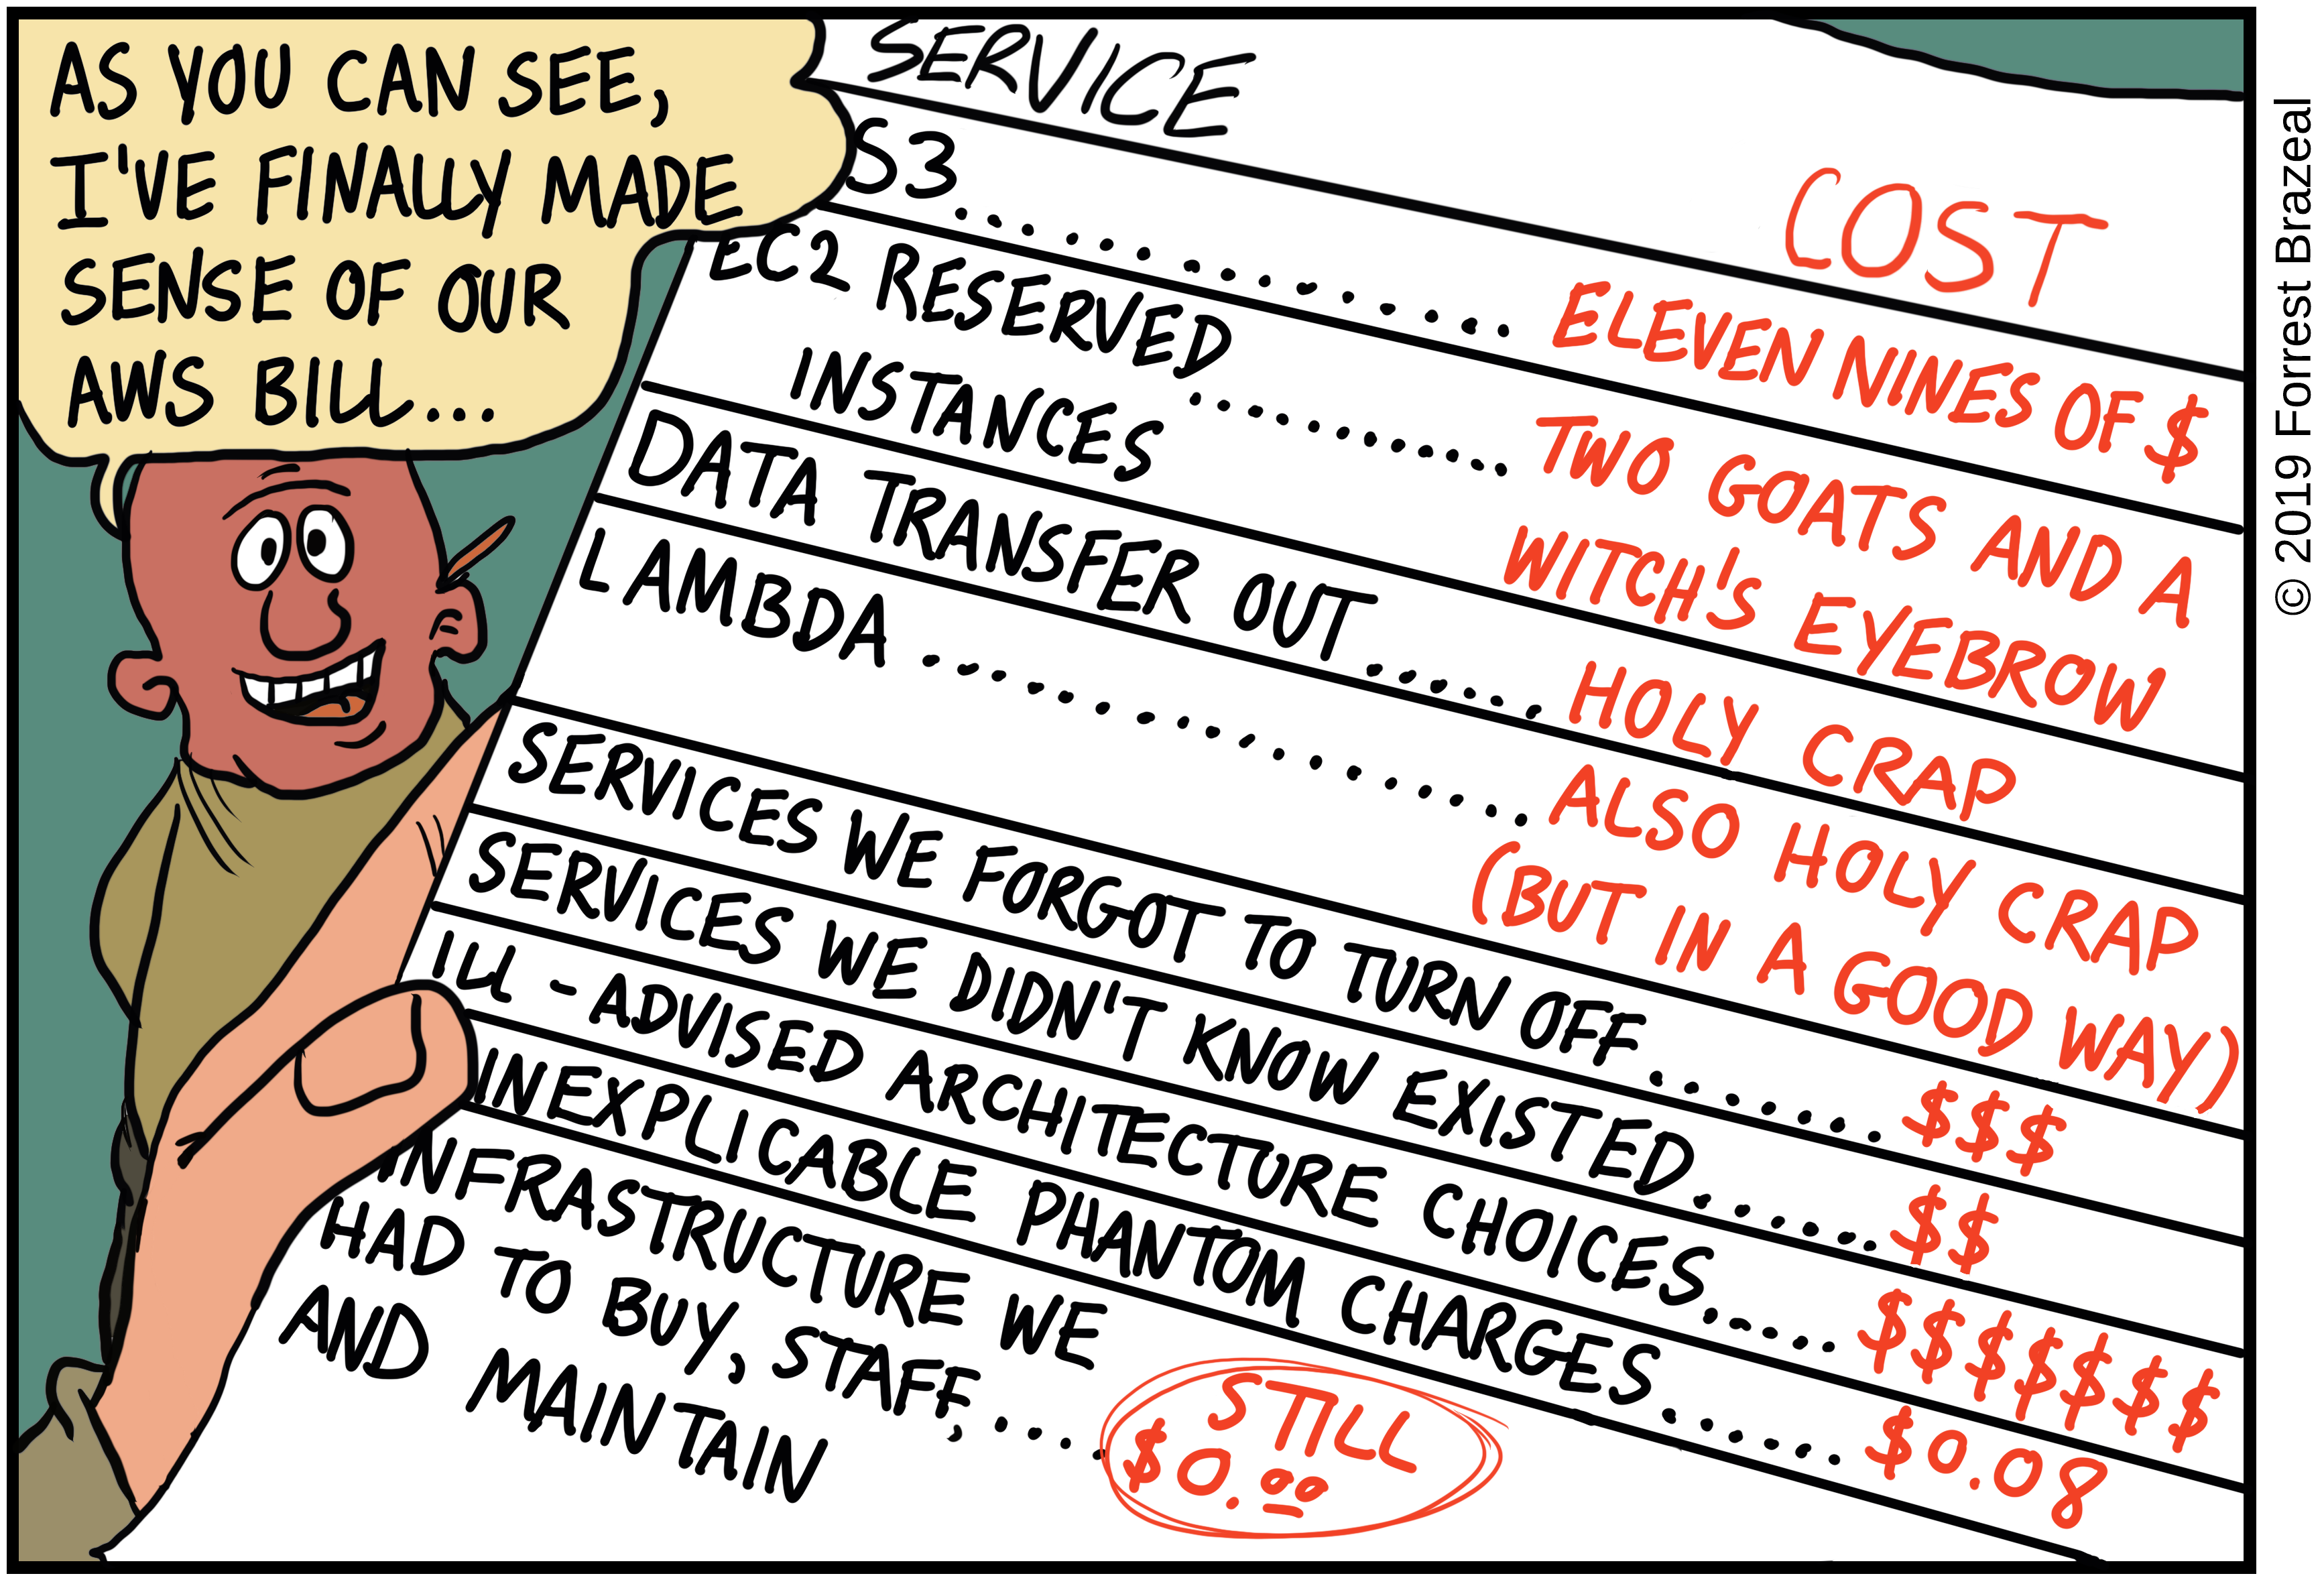 AS YOU CAN SEE,
I'VE FINALLY MADE
SENSE OF OUR
AWS BILL...
SERVICE
COST
S3............... ELEVEN NINES OF $
EC2 RESERVED
INSTANCES.......... TWO GOATS AND A
WITCH'S EYEBROW
DATA TRANSFER OUT...... HOLY CRAP
LAMBDA ................. ALSO HOLY CRAP
(BUT IN A GOOD WAY)
SERVICES WE FORGOT TO TURN OFF....... $$$
SERVICES WE DIDN'T KNOW EXISTED...... $$
ILL-ADVISED ARCHITECTURE CHOICES..... $$$$$$$
INEXPLICABLE PHANTOM CHARGES...... $0.08
INFRASTRUCTURE WE
HAD TO BUY, STAFF,
AND MAINTAIN .... STILL
$0.00
© 2019 Forrest Brazeal